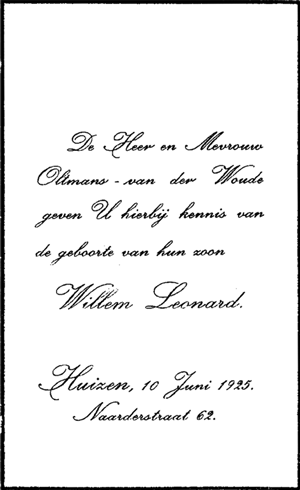 De Heer en Mevrouw
Oltmans - van der Woude
geven U hierbij kennis van
de geboorte van hun zoon
Willem Leonard.
Huizen, 10 Juni 1925.
Naarderstraat 62.